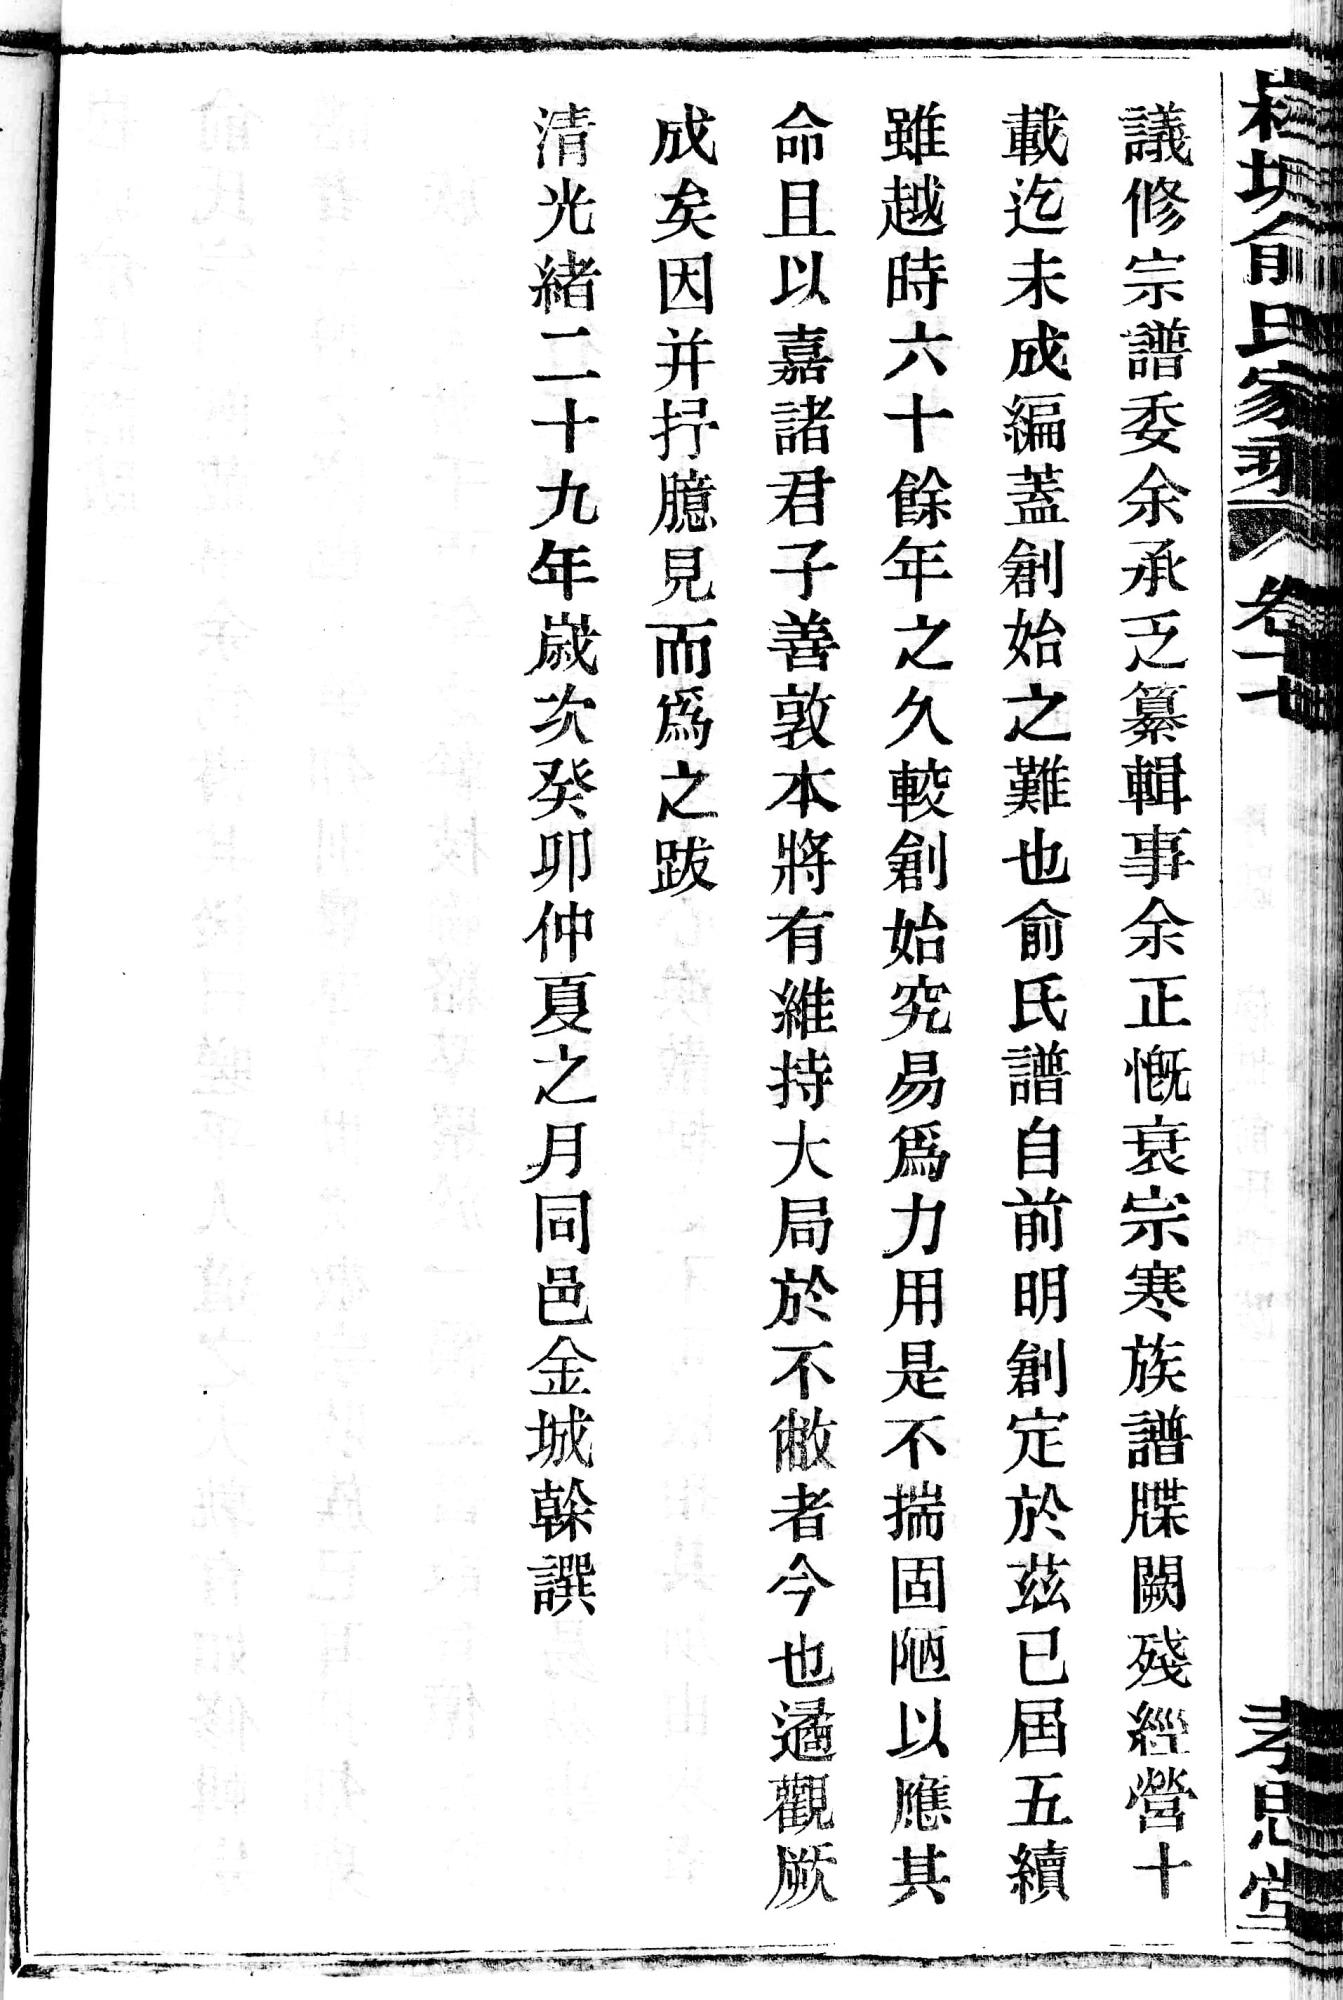 俞氏家乘 卷十七 孝思堂
議修宗譜委余承乏纂輯事余正慨衰宗寒族譜牒闕殘經營十
載迄未成編蓋創始之難也俞氏譜自前明創定於茲已屆五續
雖越時六十餘年之久較創始究易爲力用是不揣固陋以應其
命且以嘉諸君子善敦本將有維持大局於不敝者今也遹觀厥
成矣因并抒臆見而爲之跋
清光緒二十九年歲次癸卯仲夏之月同邑金城榦譔